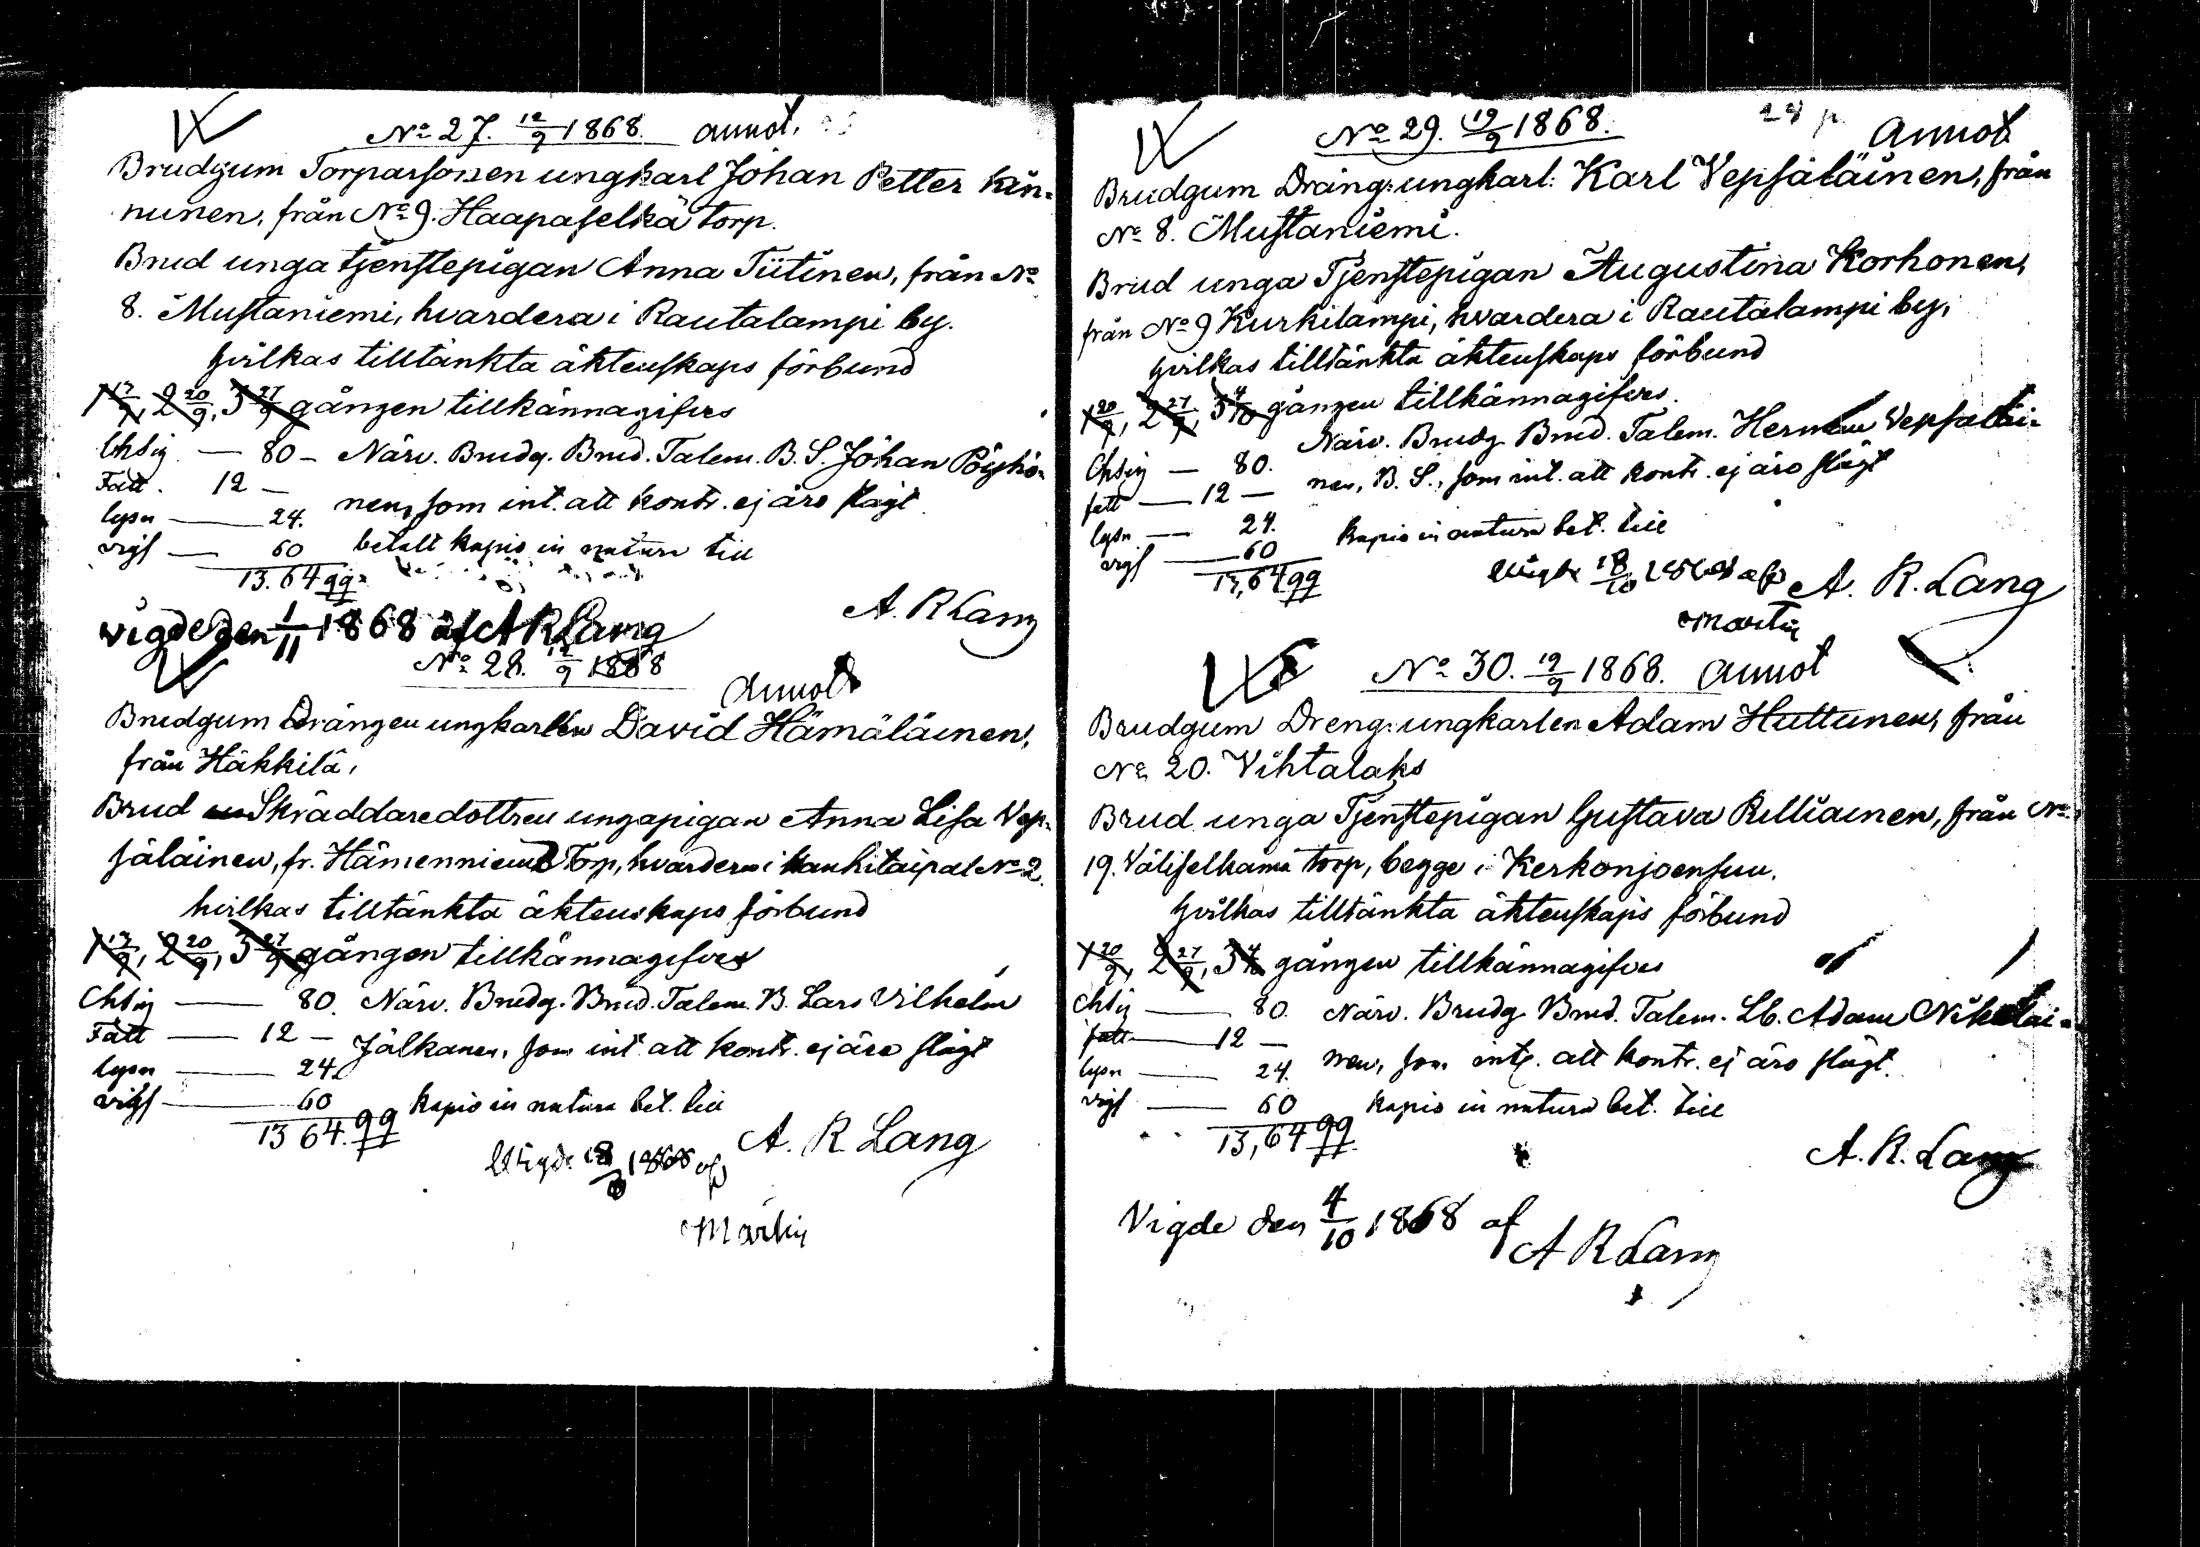 No 27. 12/9 1868. annot.
Brudgum Torparsonen ungkarl Johan Petter Kin-
nunen, från No 9. Haapaselkä torp.
Brud unga tjenstepigan Anna Tiitinen, från No
8. Mustaniemi, hvardera i Rautalampi by.
hvilkas tilltänkta äktenskaps förbund
1 13/9, 2 20/9, 3 27/9 gången tillkännagifves
Chtig — 80 – Närv. Brudg. Brud. Talem. B. S. Johan Pöyhö-
Fatt. 12 – nen, som int. att kontr. ej äro slägt
lysn — 24. betalt kapio in natura till
vigs — 60
13.64 qq. A. R Lang
vigde den 1/11 1868 af A R Lang
No 28. 12/9 1868
annot
Brudgum Drängen ungkarlen David Hämäläinen,
från Häkkilä,
Brud Skräddaredottren ungapigan Anna Lisa Vep-
säläinen, fr. Hämenniemi Torp, hvardera i Hankitaipal No 2.
hvilkas tilltänkta äktenskaps förbund
1 13/9, 2 20/9, 3 27/9 gången tillkännagifves
Chtig — 80. Närv. Brudg. Brud. Talem. B. Lars Vilhelm
Fatt — 12 – Jälkanen, som int att kontr. ej äro slägt
lysn — 24.
vigs — 60 kapio in natura bet. till
13 64. qq A. R Lang
Vigde 18 1868 af
Martin
No 29. 19/9 1868.
annot
Brudgum Dräng. ungkarl. Karl Vepsäläinen, från
No 8. Mustaniemi.
Brud unga Tjenstepigan Augustina Korhonen,
från No 9 Kurkilampi, hvardera i Rautalampi by,
hvilkas tilltänkta äktenskaps förbund
1 20/9, 2 27/9, 3 4/10 gången tillkännagifves.
Närv. Brudg Brud. Talem. Herman Vepsäläi-
Chtig — 80. nen, B. S., som int. att kontr. ej äro slägt
fatt — 12 –
lysn — 24. kapio in natura bet. till
vigs — 60
13,64 qq Vigde 18/10 1868 af A. R. Lang
Martin
No 30. 19/9 1868. annot
Brudgum Dreng. ungkarlen Adam Huttunen, från
No 20. Vihtalaks
Brud unga Tjenstepigan Gustava Rilliainen, från No
19. torp, begge i Kerkonjoensuu.
hvilkas tilltänkta äktenskaps förbund
1 20/9, 2 27/9, 3 4/10 gången tillkännagifves
Chtig — 80. Närv. Brudg Brud. Talem. Lb. Adam Nikolai-
fatt — 12 –
lysn — 24. nen, som int. att kontr. ej äro slägt.
vigs — 60 kapio in natura bet. till
13,64 qq. A. R. Lang
Vigde den 4/10 1868 af
A R Lang